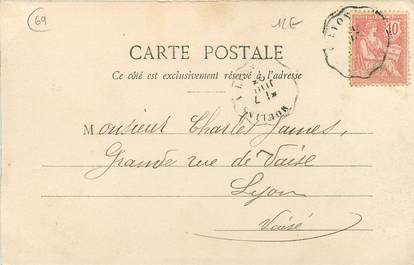 69
12E
LYON
10
CARTE POSTALE
Ce côté est exclusivement réservé à l'adresse
MOULINS A LYON
Monsieur Charles James,
Grande rue de Vaise
Lyon
Vaise